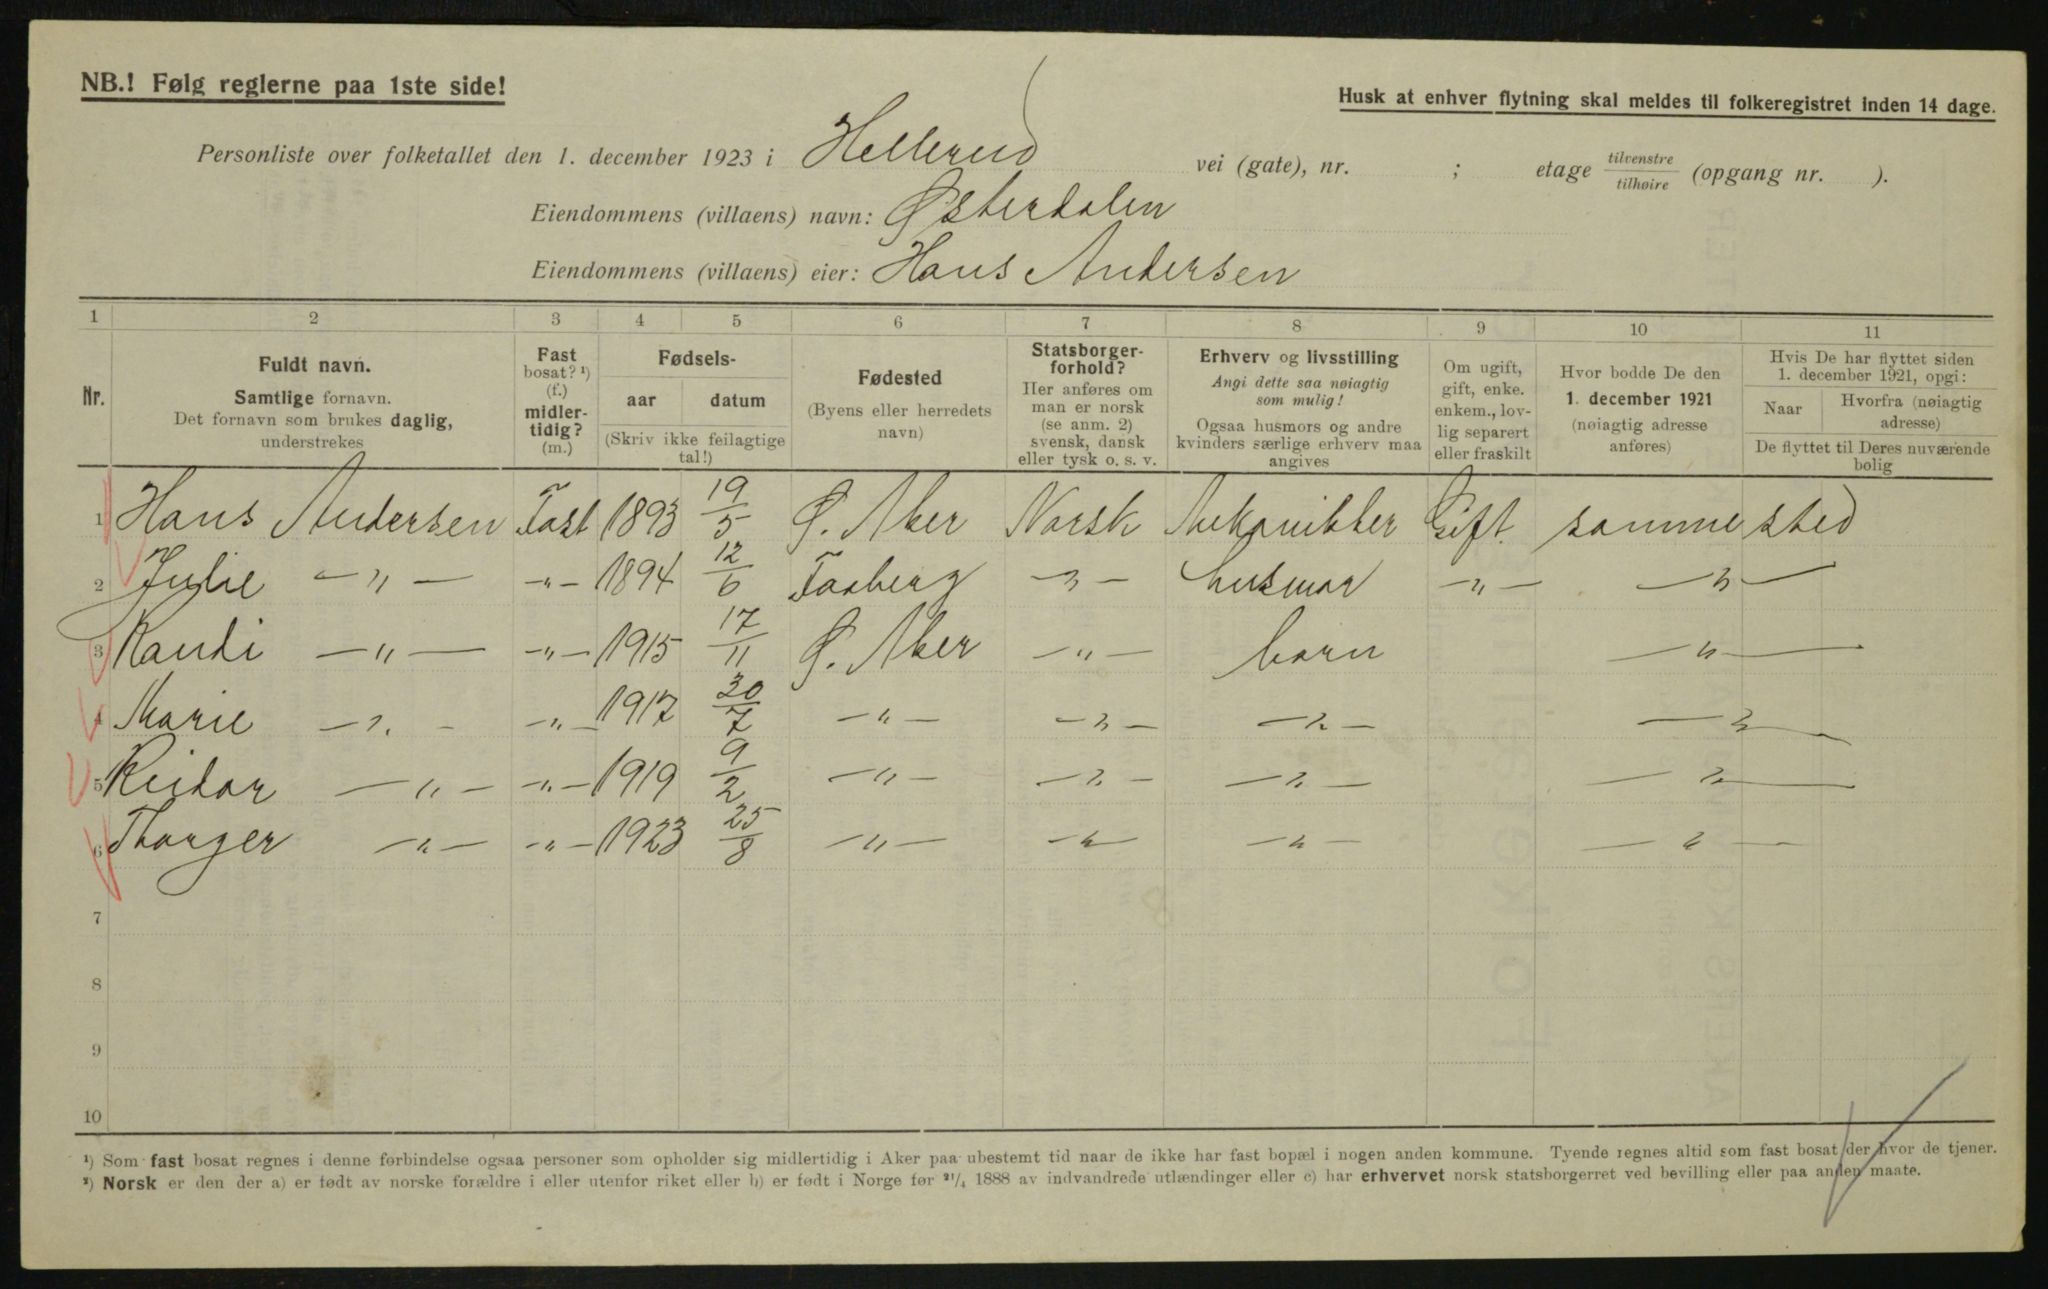 NB.! Følg reglerne paa 1ste side!
Husk at enhver flytning skal meldes til folkeregistret inden 14 dage.
Personliste over folketallet den 1. december 1923 i Hellerud vei (gate), nr. ; etage tilvenstre/tilhøire (opgang nr. ).
Eiendommens (villaens) navn: Østerdalen
Eiendommens (villaens) eier: Hans Andersen
1 2 3 4 5 6 7 8 9 10 11
Nr.
Fuldt navn.
Samtlige fornavn.
Det fornavn som brukes daglig,
understrekes
Fast
bosat? ¹)
(f.)
midler-
tidig?
(m.)
Fødsels-
aar datum
(Skriv ikke feilagtige
tal!)
Fødested
(Byens eller herredets
navn)
Statsborger-
forhold?
Her anføres om
man er norsk
(se anm. 2)
svensk, dansk
eller tysk o. s. v.
Erhverv og livsstilling
Angi dette saa nøiagtig
som mulig!
Ogsaa husmors og andre
kvinders særlige erhverv maa
angives
Om ugift,
gift, enke.
enkem., lov-
lig separert
eller fraskilt
Hvor bodde De den
1. december 1921
(nøiagtig adresse
anføres)
Hvis De har flyttet siden
1. december 1921, opgi:
Naar
Hvorfra (nøiagtig
adresse)
De flyttet til Deres nuværende
bolig
1 Hans Andersen Fast 1893 19/5 Ø. Aker Norsk Mekanikker Gift. samme sted
2 Julie — " — — " — 1894 12/6 Faaberg — " — husmor — " — — " —
3 Randi — " — — " — 1915 17/11 Ø. Aker — " — barn — " —
4 Marie — " — — " — 1917 30/7 — " — — " — — " — — " —
5 Reidar — " — — " — 1919 9/2 — " — — " — — " — — " —
6 Thorger — " — — " — 1923 25/8 — " — — " — — " — — " —
7
8
9
10
¹) Som fast bosat regnes i denne forbindelse ogsaa personer som opholder sig midlertidig i Aker paa ubestemt tid naar de ikke har fast bopæl i nogen anden kommune. Tyende regnes altid som fast bosat der hvor de tjener.
²) Norsk er den der a) er født av norske forældre i eller utenfor riket eller b) er født i Norge før ²¹/₄ 1888 av indvandrede utlændinger eller c) har erhvervet norsk statsborgerret ved bevilling eller paa anden maate.